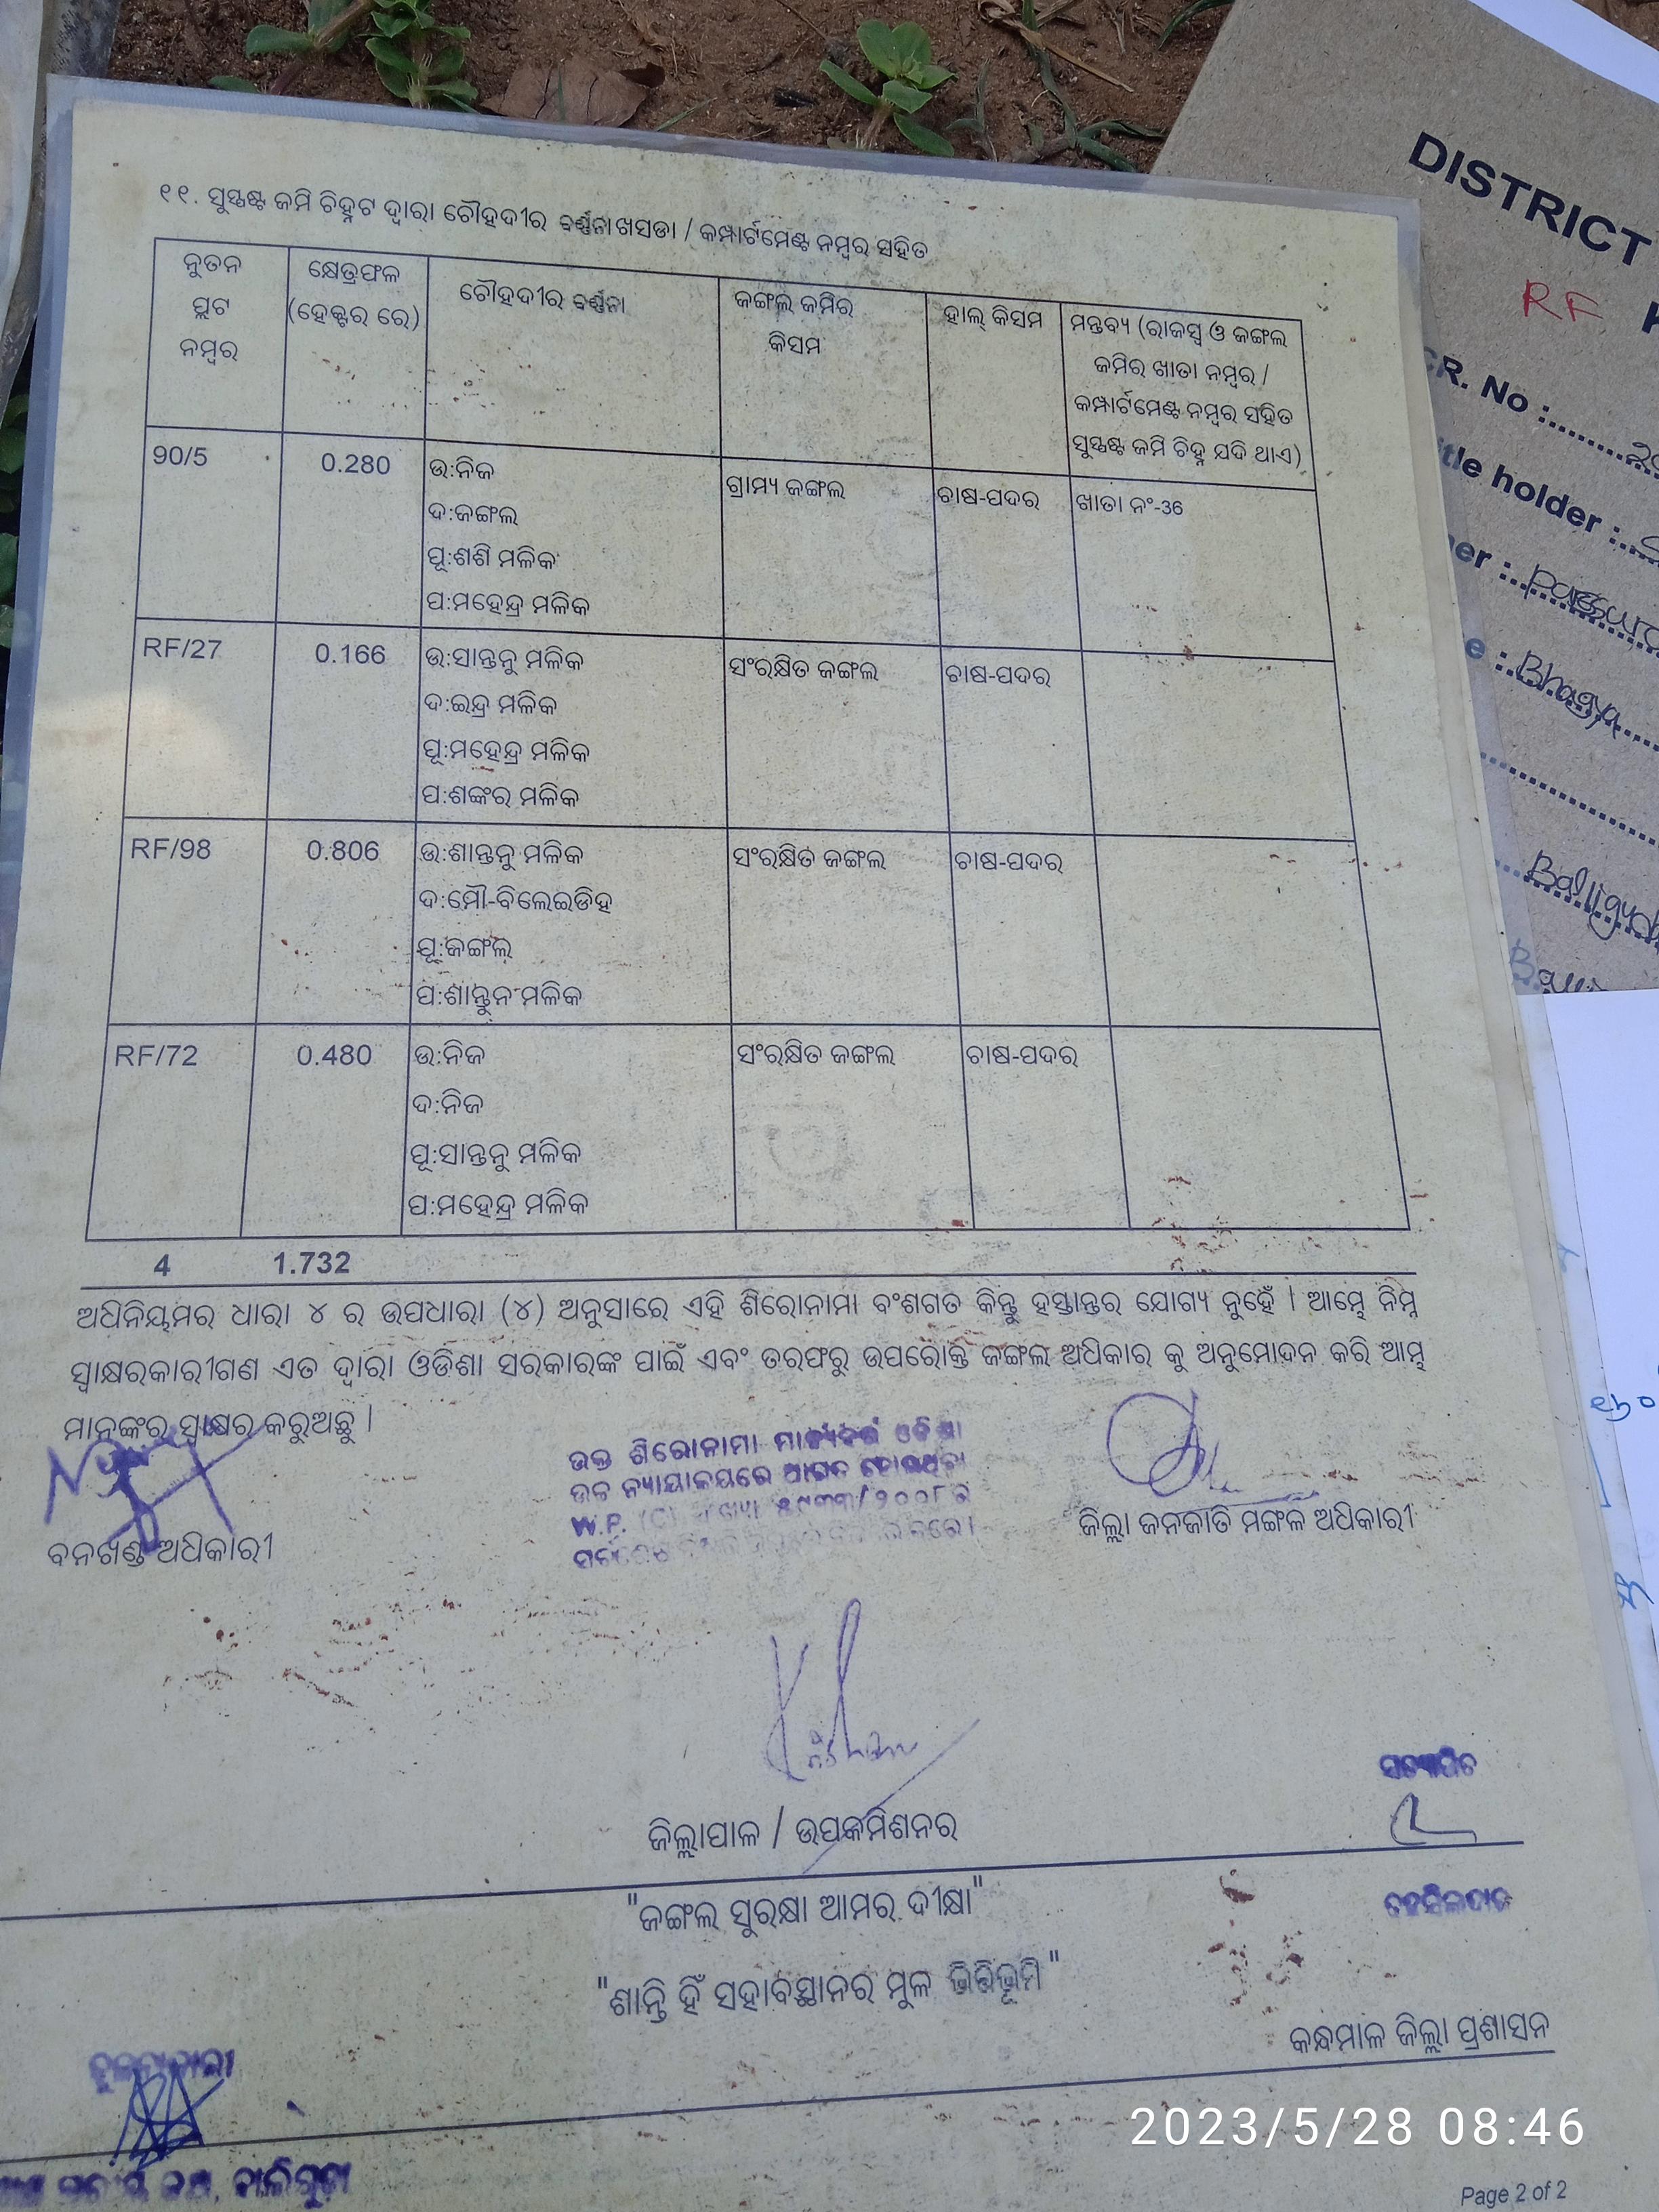 ୧୧. ସୁସ୍ପଷ୍ଟ ଜମି ଚିହ୍ନଟ ଦ୍ୱାରା ଚୌହଦୀର ବର୍ଣ୍ଣନା ଖସଡା / କମ୍ପାର୍ଟମେଣ୍ଟ ନମ୍ବର ସହିତ
ନୁତନ ପ୍ଲଟ ନମ୍ବର
କ୍ଷେତ୍ରଫଳ (ହେକ୍ଟର ରେ)
ଚୌହଦୀର ବର୍ଣ୍ଣନା
ଜଙ୍ଗଲ ଜମିର କିସମ
ହାଲ୍ କିସମ
ମନ୍ତବ୍ୟ (ରାଜସ୍ୱ ଓ ଜଙ୍ଗଲ
ଜମିର ଖାତା ନମ୍ବର /
କମ୍ପାର୍ଟମେଣ୍ଟ ନମ୍ବର ସହିତ
ସୁସ୍ପଷ୍ଟ ଜମି ଚିହ୍ନ ଯଦି ଥାଏ)
90/5 0.280 ଉ:ନିଜ ଗ୍ରାମ୍ୟ ଜଙ୍ଗଲ ଚାଷ-ପଦର ଖାତା ନଂ-36
ଦ:ଜଙ୍ଗଲ
ପୂ:ଶଶି ମଳିକ
ପ:ମହେନ୍ଦ୍ର ମଳିକ
RF/27 0.166 ଉ:ସାନ୍ତନୁ ମଳିକ ସଂରକ୍ଷିତ ଜଙ୍ଗଲ ଚାଷ-ପଦର
ଦ:ଇନ୍ଦ୍ର ମଳିକ
ପୂ:ମହେନ୍ଦ୍ର ମଳିକ
ପ:ଶଙ୍କର ମଳିକ
RF/98 0.806 ଉ:ଶାନ୍ତନୁ ମଳିକ ସଂରକ୍ଷିତ ଜଙ୍ଗଲ ଚାଷ-ପଦର
ଦ:ମୌ-ବିଲେଇଡିହ
ପୂ:ଜଙ୍ଗଲ
ପ:ଶାନ୍ତୁନ ମଳିକ
RF/72 0.480 ଉ:ନିଜ ସଂରକ୍ଷିତ ଜଙ୍ଗଲ ଚାଷ-ପଦର
ଦ:ନିଜ
ପୂ:ସାନ୍ତନୁ ମଳିକ
ପ:ମହେନ୍ଦ୍ର ମଳିକ
4 1.732
ଅଧିନିୟମର ଧାରା ୪ ର ଉପଧାରା (୪) ଅନୁସାରେ ଏହି ଶିରୋନାମା ବଂଶଗତ କିନ୍ତୁ ହସ୍ତାନ୍ତର ଯୋଗ୍ୟ ନୁହେଁ । ଆମ୍ଭେ ନିମ୍ନ
ସ୍ୱାକ୍ଷରକାରୀଗଣ ଏତ ଦ୍ୱାରା ଓଡିଶା ସରକାରଙ୍କ ପାଇଁ ଏବଂ ତରଫରୁ ଉପରୋକ୍ତ ଜଙ୍ଗଲ ଅଧିକାର କୁ ଅନୁମୋଦନ କରି ଆମ୍ଭ
ମାନଙ୍କର ସ୍ୱାକ୍ଷର କରୁଅଛୁ ।
ଉକ୍ତ ଶିରୋନାମା ଓଡିଶା
ଉଚ୍ଚ ନ୍ୟାୟାଳୟରେ
W.P. (C)
ବନଖଣ୍ଡ ଅଧିକାରୀ
ଜିଲ୍ଲା ଜନଜାତି ମଙ୍ଗଳ ଅଧିକାରୀ
ସତ୍ୟାପିତ
ଜିଲ୍ଲାପାଳ / ଉପକମିଶନର
"ଜଙ୍ଗଲ ସୁରକ୍ଷା ଆମର ଦୀକ୍ଷା"
ତହସିଲଦାର
"ଶାନ୍ତି ହିଁ ସହାବସ୍ଥାନର ମୁଳ ଭିତ୍ତିଭୂମି"
କନ୍ଧମାଳ ଜିଲ୍ଲା ପ୍ରଶାସନ
2023/5/28 08:46
Page 2 of 2
DISTRICT
RF
CR. No :
holder :
Bhagya